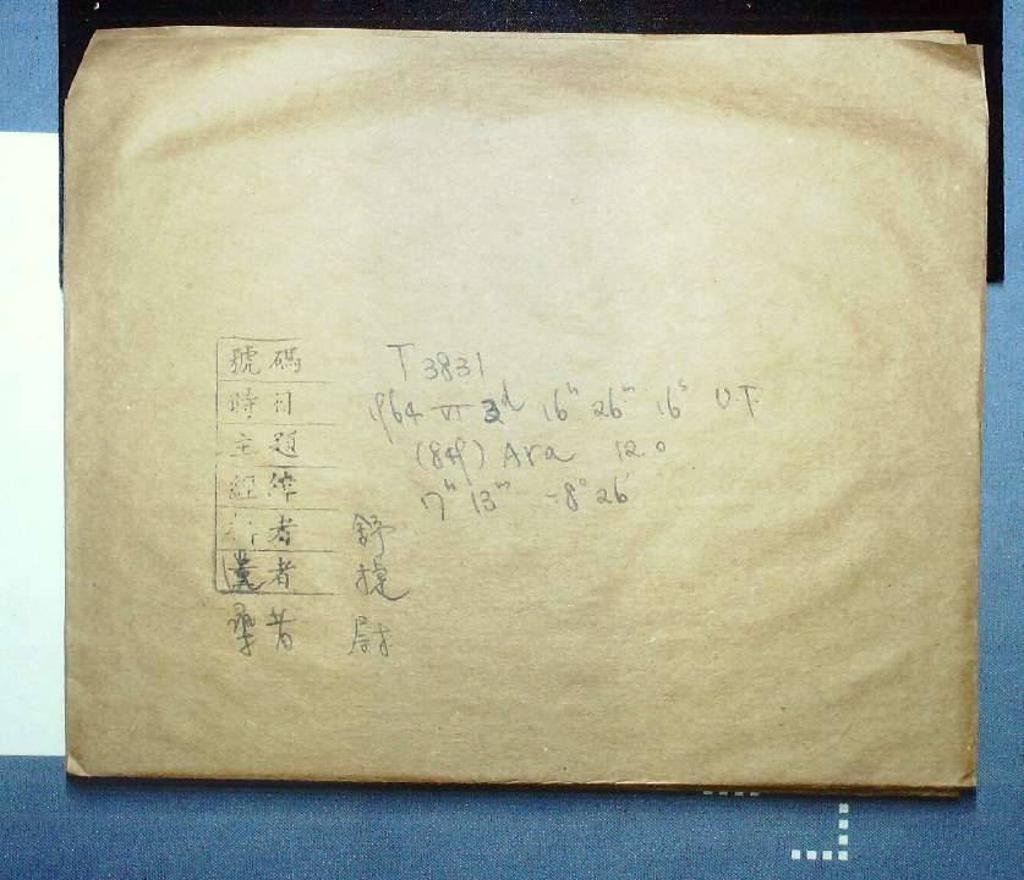 號碼 T 3831
時日 1964 VI 3d 16h 26m 16s U.T.
主題 (849) Ara 12.0
經緯 17h 13m -8° 26'
者 舒
者
者